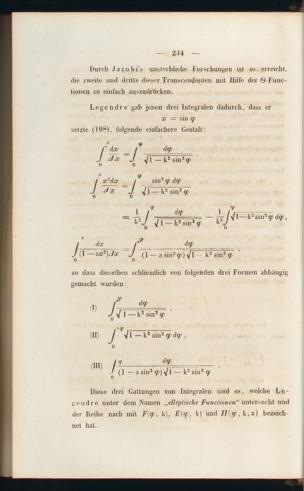 — 234 —
Durch Jacobi's unsterbliche Forschungen ist es erreicht,
die zweite und dritte dieser Transcendenten mit Hilfe der Θ-Func-
tionen so einfach auszudrücken.
Legendre gab jenen drei Integralen dadurch, dass er
x = sin φ
setzte (108), folgende einfachere Gestalt:
∫₀ˣ dx/Δx = ∫₀^φ dφ/√(1 — k² sin² φ) ,
∫₀ˣ x²dx/Δx = ∫₀^φ sin² φ dφ/√(1 — k² sin² φ)
= 1/k² ∫₀^φ dφ/√(1 — k² sin² φ) — 1/k² ∫₀^φ √(1—k² sin² φ) dφ ,
∫₀ˣ dx/((1—ax²).Δx) = ∫₀^φ dφ/((1 — a sin² φ) √(1 — k² sin² φ)) ,
so dass dieselben schliesslich von folgenden drei Formen abhängig
gemacht wurden:
(I) ∫₀^φ dφ/√(1—k² sin² φ) ,
(II) ∫₀^φ √(1—k² sin² φ) dφ ,
(III) ∫₀^φ dφ/((1 — a sin² φ) √(1—k² sin² φ)) .
Diese drei Gattungen von Integralen sind es, welche Le-
gendre unter dem Namen „elliptische Functionen" untersucht und
der Reihe nach mit F(φ, k), E(φ, k) und Π(φ, k, a) bezeich-
net hat.